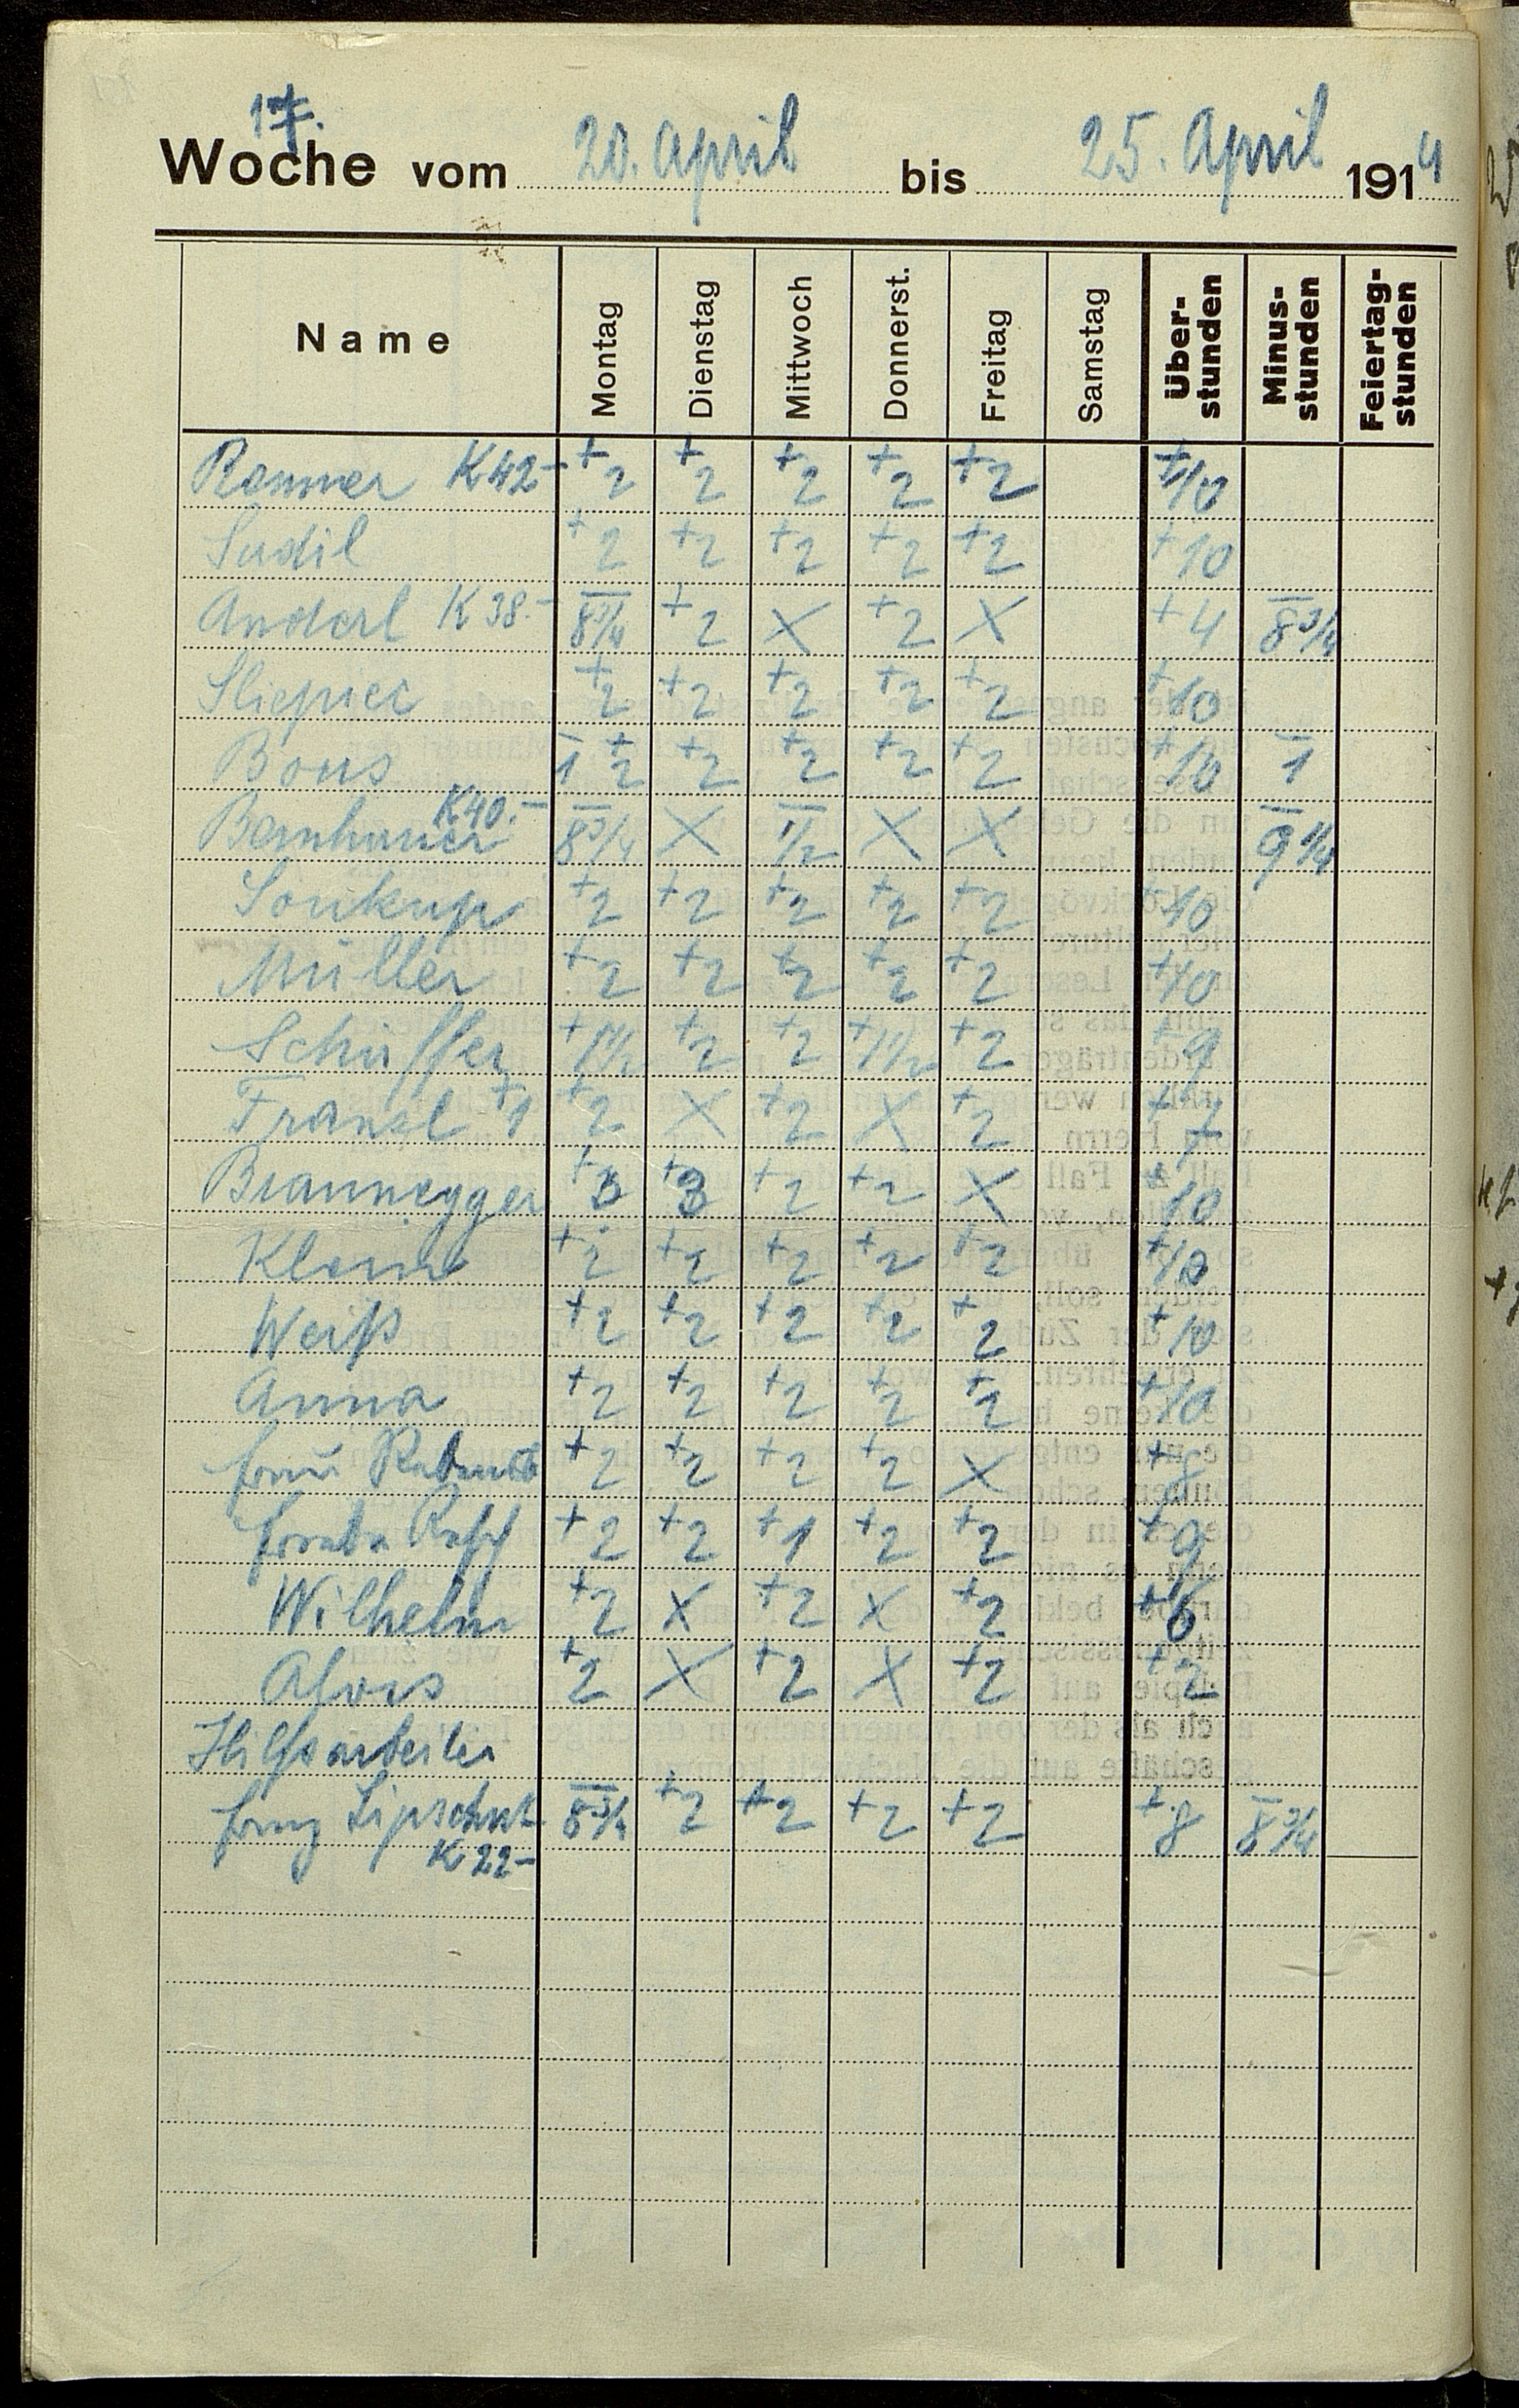 17.
Woche vom 20. April bis 25. April 1914
Name Montag Dienstag Mittwoch Donnerst. Freitag Samstag Über-stunden Minus-stunden Feiertag-stunden
K 42- +2 +2 +2 +2 +2 +10
Sudil +2 +2 +2 +2 +2 +10
Anderl K 38.- -8 3/4 +2 X +2 X +4 -8 3/4
+2 +2 +2 +2 +2 +10
Bous -1 +2 +2 +2 +2 +2 +10 -1
K 40.- -8 3/4 X -1/2 X X -9 1/4
Soukup +2 +2 +2 +2 +2 +10
Müller +2 +2 +2 +2 +2 +10
Schüffer +1 1/2 +2 +2 +1 1/2 +2 +9
Franzl +1 +2 X +2 X +2 +7
Braunegger +3 +3 +2 +2 X +10
+2 +2 +2 +2 +2 +10
Weiß +2 +2 +2 +2 +2 +10
Anna +2 +2 +2 +2 +2 +10
+2 +2 +2 +2 X +8
+2 +2 +1 +2 +2 +9
Wilhelm +2 X +2 X +2 +6
Alois +2 X +2 X +2 +2
Hilfsarbeiter
-8 3/4 +2 +2 +2 +2 +8 -8 3/4
K 22-